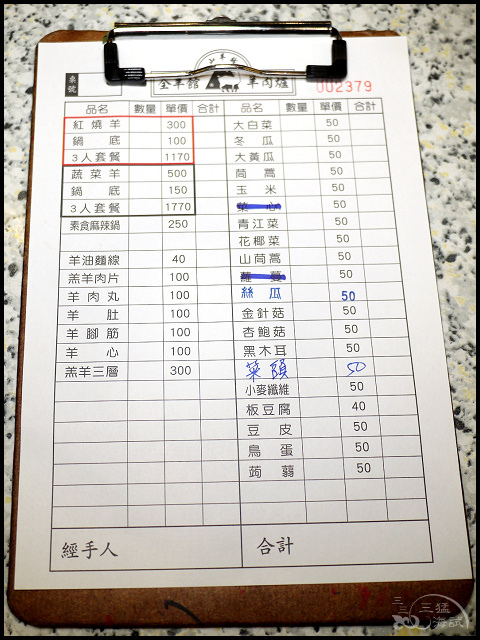 桌號
全羊館 羊肉爐
002379
品名 數量 單價 合計 品名 數量 單價 合計
紅燒羊 300 大白菜 50
鍋底 100 冬瓜 50
3人套餐 1170 大黃瓜 50
蔬菜羊 500 茼蒿 50
鍋底 150 玉米 50
3人套餐 1770 50
素食麻辣鍋 250 青江菜 50
花椰菜 50
羊油麵線 40 山茼蒿 50
羔羊肉片 100 50
羊肉丸 100 絲瓜 50
羊肚 100 金針菇 50
羊腳筋 100 杏鮑菇 50
羊心 100 黑木耳 50
羔羊三層 300 菜頭 50
小麥纖維 50
板豆腐 40
豆皮 50
鳥蛋 50
蒟蒻 50
經手人 合計
三猛海試